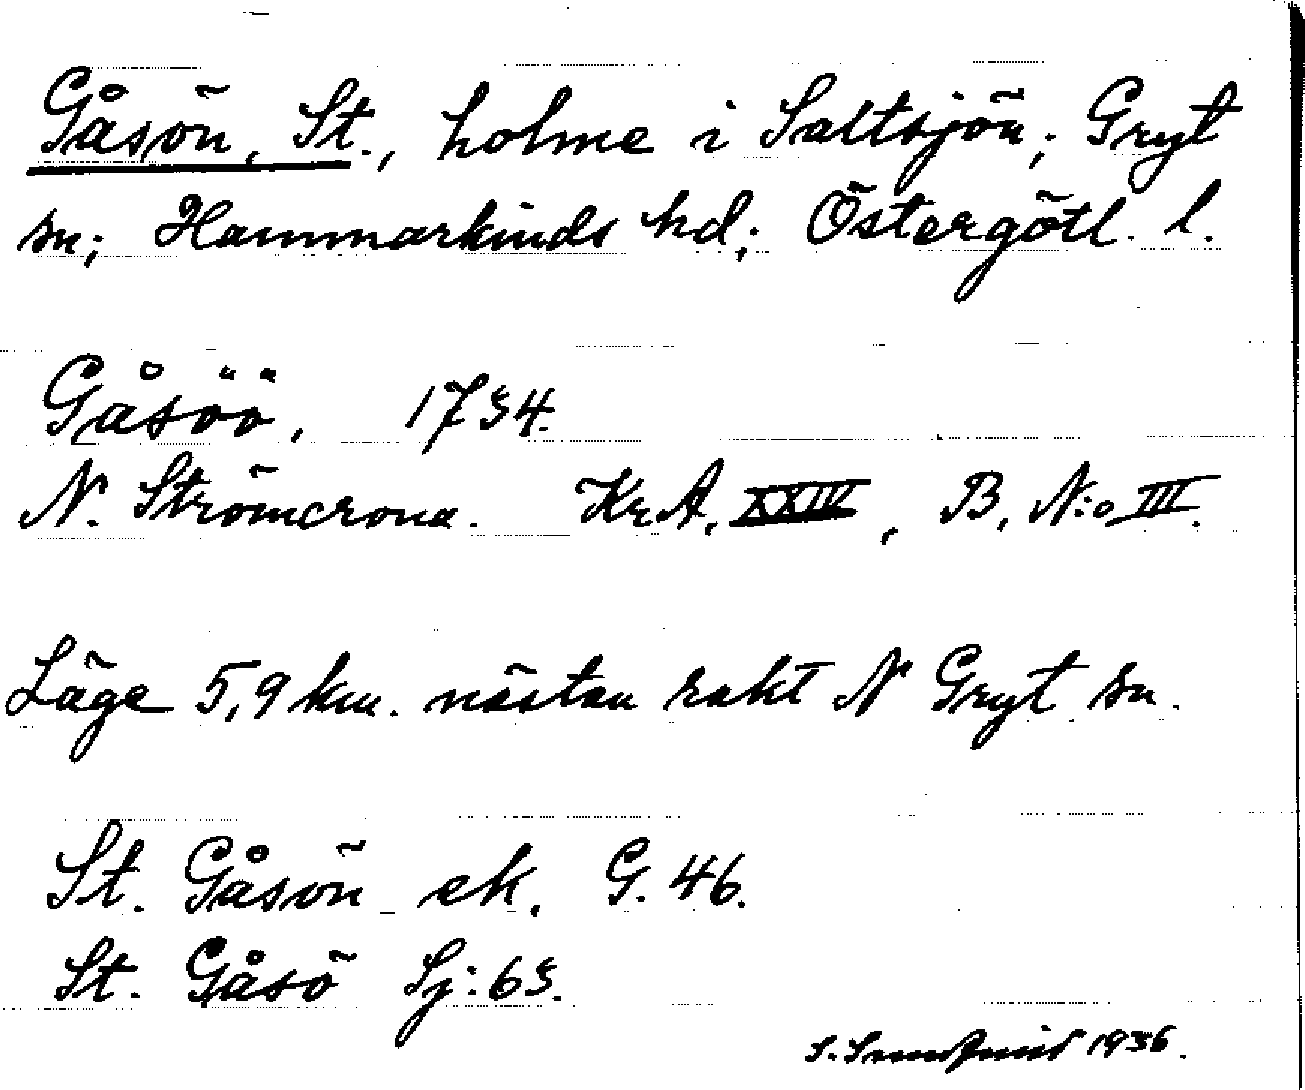 Gåsön, St., holme i Saltsjön; Gryt
sn; Hammarkinds hd; Östergötl. l.
Gåsöö, 1734.
N. Strömcrona. Kr. A. XXIV, B, N:o III.
Läge 5,9 km. nästan rakt N Gryt sn.
St. Gåsön ek. G. 46.
St. Gåsö Sj: 63.
1936.